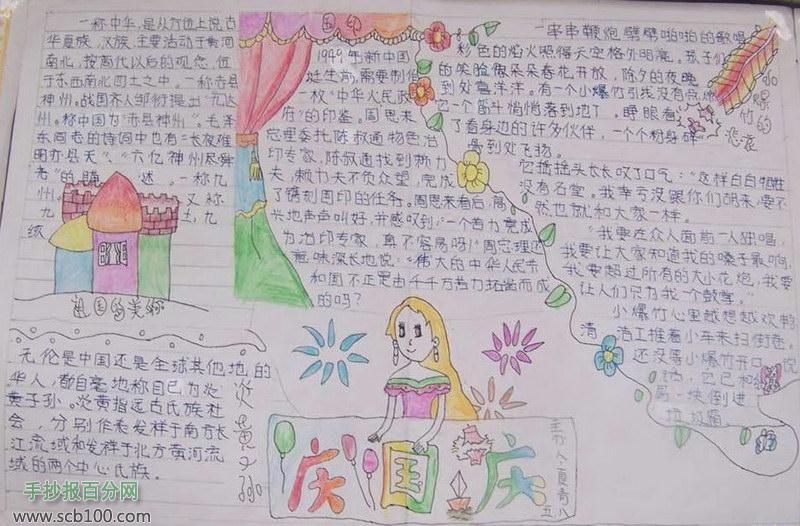 一称中华,是从方位上说古
华夏族,汉族,主要活动于黄河
南北,按商代以后的观念,位
于东西南北四土之中。一称赤县
神州。战国齐人邹衍提出"九大
州。称中国为"赤县神州"。毛泽
东同志的诗词中也有:"长夜难
明赤县天"、"六亿神州尽舜
尧"的
述。一称九
州。
又称
九
土,九
祖国的美称
国印
1949年新中国
诞生前,需要制作
一枚"中华人民政
府"的印鉴。周恩来
总理委托陈叔通物色治
印专家,陈叔通找到
夫,
夫不负众望,完成
了镌刻国印的任务。周恩来看后,高
兴地声声叫好,并感叹到:"一个苦力竟成
为治印专家,真不容易吗!"周总理还
意味深长地说:"伟大的中华人民共
和国不正是由千千万苦力拓凿而成
的吗?
一串串鞭炮劈劈啪啪的歌唱
彩色的焰火照得天空格外明亮。孩子们
的笑脸像朵朵春花开放,除夕的夜晚
到处喜洋洋。有一个小爆竹引线没有点燃
它一个筋斗悄悄落到地下,睁眼看
了看身边的许多伙伴,一个个粉身碎
骨到处飞扬。
小爆竹的悲哀
它摇摇头长长叹了口气:"这样白白牺牲
没有名堂。我幸亏没跟你们胡来,要不
然也就和大家一样。
"我要在众人面前一人独唱,
我要让大家知道我的嗓子最响,
我要超过所有的大小花炮,我要
让人们只为我一个鼓掌。"
小爆竹心里越想越欢畅
清洁工推着小车来扫街巷。
还没等小爆竹开口说
话,它已和
一块倒进
垃圾箱。
无伦是中国还是全球其他地的
华人,都自毫地称自己为炎
黄子孙。炎黄指远古氏族社
会,分别作表发祥于南方长
江流域和发祥于北方黄河流
域的两个中心民族。
炎黄子孙
庆国庆
主办人夏青
五八
手抄报百分网
www.scb100.com